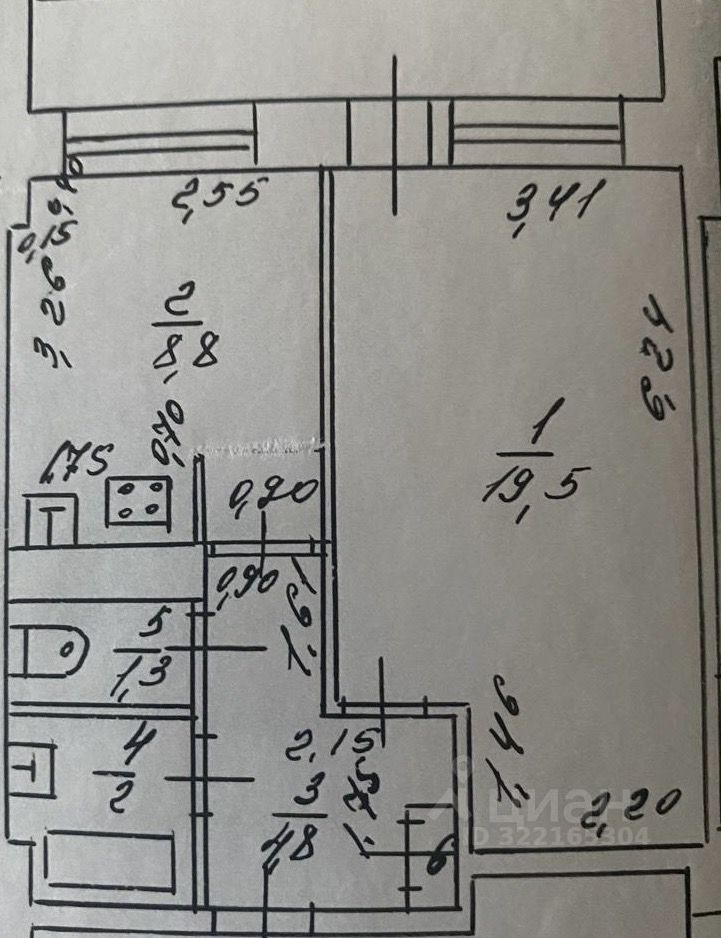 0,40
2,55
3,41
0,15
3,26
2
8,8
0,70
1
19,5
1,75
0,90
0,90
5
1,3
1,46
2,15
4
2
3
4,8
6
2,20
ЦИАН
ID 322165304